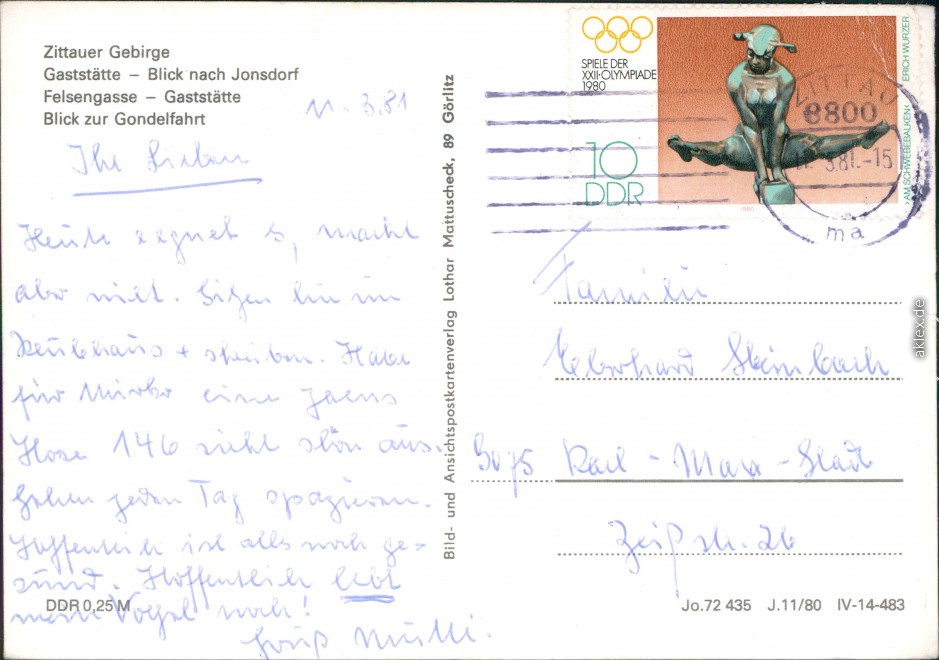 Zittauer Gebirge
Gaststätte – Blick nach Jonsdorf
Felsengasse – Gaststätte
Blick zur Gondelfahrt
11.3.81
Ihr Lieben
Heute regnet s, macht
aber nicht. Sitzen hier im
+ schreiben. Habe
für Mirko eine Jaens
Hose 146 sieht schön aus.
Gehen jeden Tag spazieren.
Hoffentlich ist alles noch ge-
sund. Hoffentlich lebt
mein Vogel noch!
Gruß Mutti.
DDR 0,25 M
Bild- und Ansichtspostkartenverlag Lothar Mattuscheck, 89 Görlitz
SPIELE DER
XXII·OLYMPIADE
1980
10
DDR
ERICH WURZER
›AM SCHWEBEBALKEN‹
ZITTAU
8800
3.81.-15
ma
Familie
Eberhard Steinbach
9075 Karl-Marx-Stadt
Zeißstr. 26
Jo. 72 435 J.11/80 IV-14-483
aklex.de